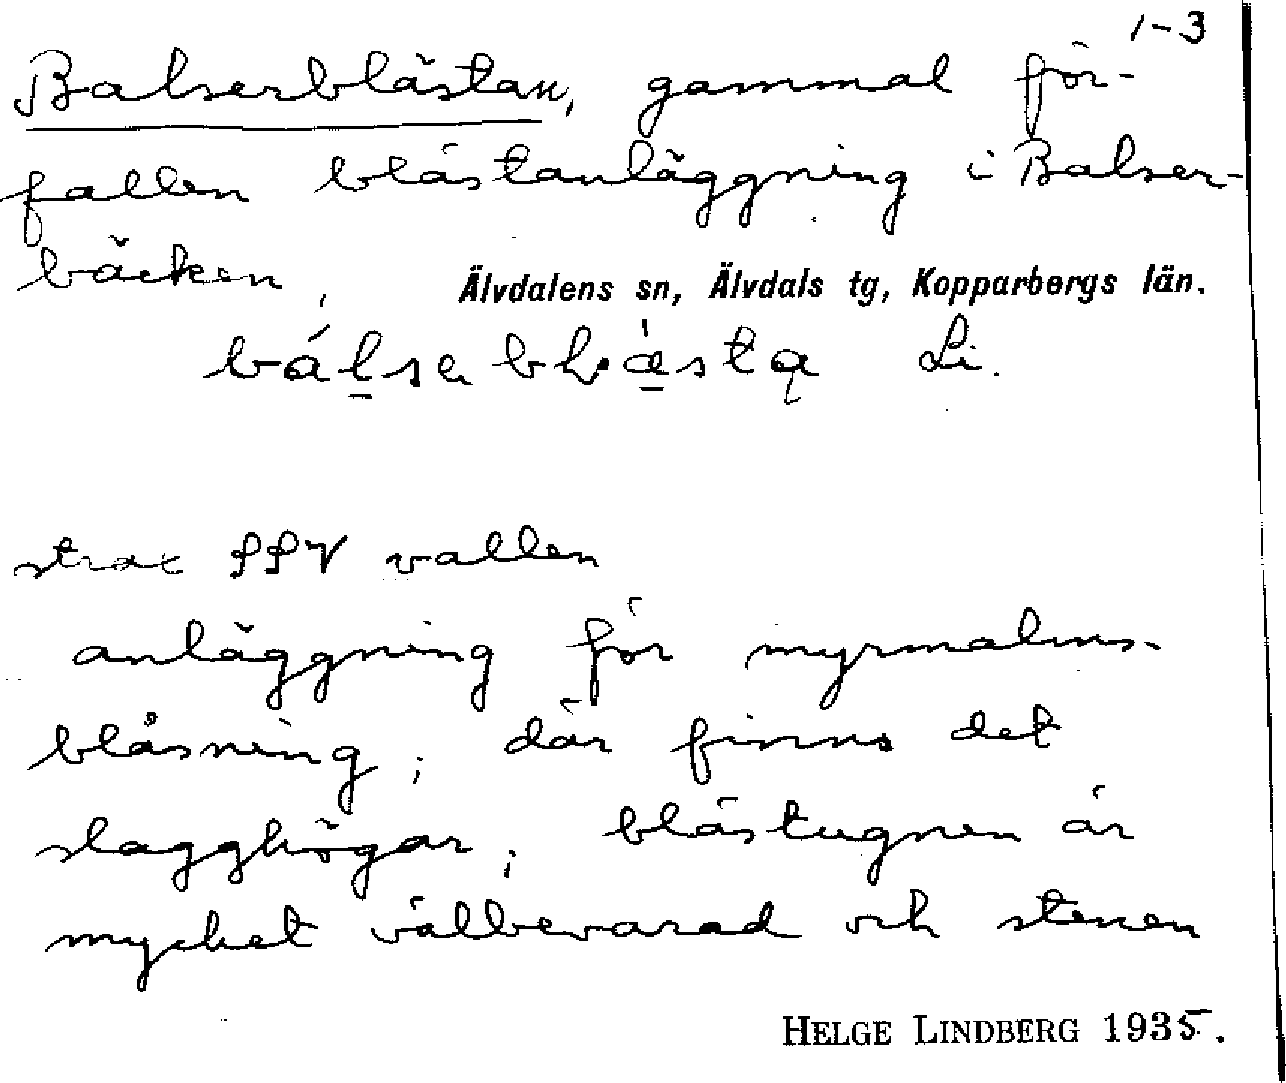 1-3
Balserblästan, gammal för-
fallen blästanläggning i Balser-
bäcken,
Älvdalens sn, Älvdals tg, Kopparbergs län.
Li.
strax SSV vallen
anläggning för myrmalms-
blåsning; där finns det
slagghögar; blästugnen är
mycket välbevarad och stenen
HELGE LINDBERG 1935.